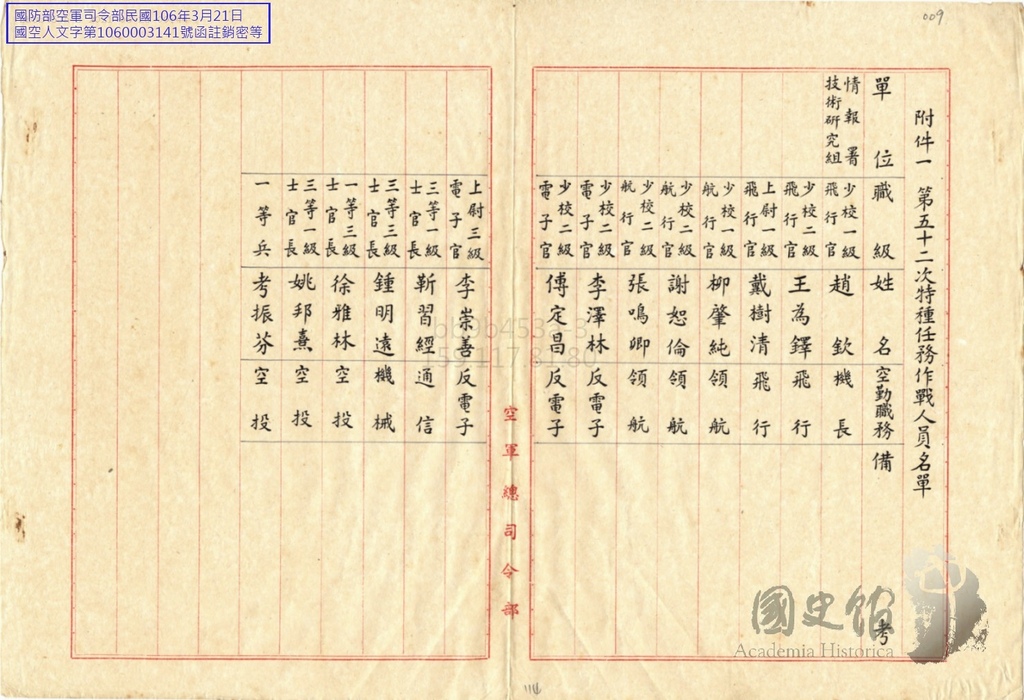 國防部空軍司令部民國106年3月21日
國空人文字第1060003141號函註銷密等
009
附件一 第五十二次特種任務作戰人員名單
單位 職級 姓名 空勤職務 備考
情報署技術研究組 少校一級飛行官 趙欽 機長
少校二級飛行官 王為鐸 飛行
上尉一級飛行官 戴樹清 飛行
少校一級航行官 柳肇純 領航
少校二級航行官 謝恕倫 領航
少校二級航行官 張鳴卿 領航
少校二級電子官 李澤林 反電子
少校二級電子官 傅定昌 反電子
空軍總司令部
上尉三級電子官 李崇善 反電子
三等一級士官長 靳習經 通信
三等三級士官長 鍾明遠 機械
一等三級士官長 徐雅林 空投
三等一級士官長 姚邦熹 空投
一等兵 考振芬 空投
國史館
Academia Historica